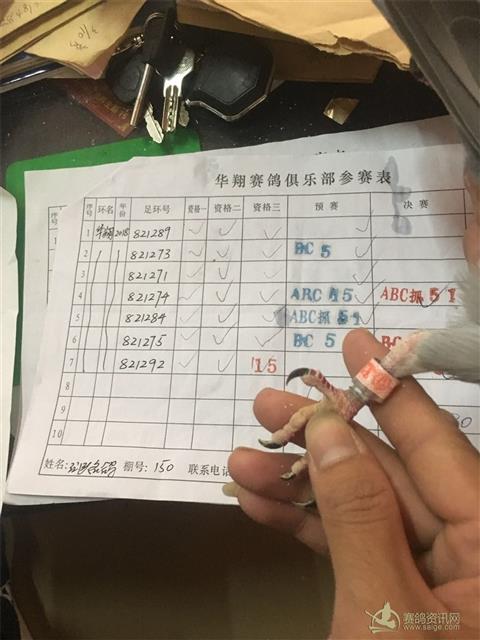 华翔赛鸽俱乐部参赛表
序号 环名 年份 足环号 资格一 资格二 资格三 预赛 决赛
1 华翔 2018 821289
2 821273 BC 5
3 821271
4 821274 ARC 15 ABC抓 51
5 821284 ABC抓 51
6 821275 BC 5
7 821292 15
8
9
10
姓名: 棚号: 150 联系电话
赛鸽资讯网
www.saige.com